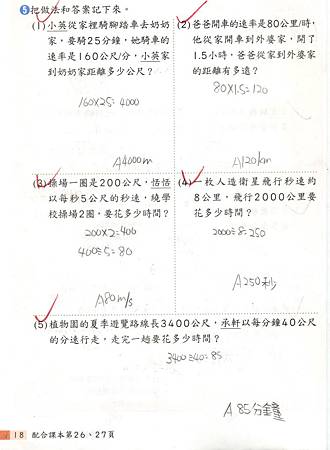 5 把做法和答案記下來。
(1) 小英從家裡騎腳踏車去奶奶
家，要騎25分鐘，她騎車的
速率是160公尺/分，小英家
到奶奶家距離多少公尺？
160×25=4000
A4000m
(2) 爸爸開車的速率是80公里/時，
他從家開車到外婆家，開了
1.5小時，爸爸從家到外婆家
的距離有多遠？
80×1.5=120
A120km
(3) 操場一圈是200公尺，恬恬
以每秒5公尺的秒速，繞學
校操場2圈，要花多少時間？
200×2=400
400÷5=80
A80m/s
(4) 一枚人造衛星飛行秒速約
8公里，飛行2000公里要
花多少時間？
2000÷8=250
A250秒
(5) 植物園的夏季遊覽路線長3400公尺，承軒以每分鐘40公尺
的分速行走，走完一趟要花多少時間？
3400÷40=85
A85分鐘
18 配合課本第26、27頁